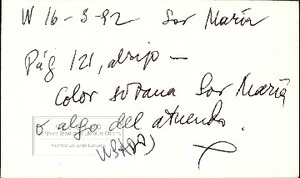 W 16-3-92 Sor María
Pág 121, abajo —
color sotana Sor María
o algo del atuendo.